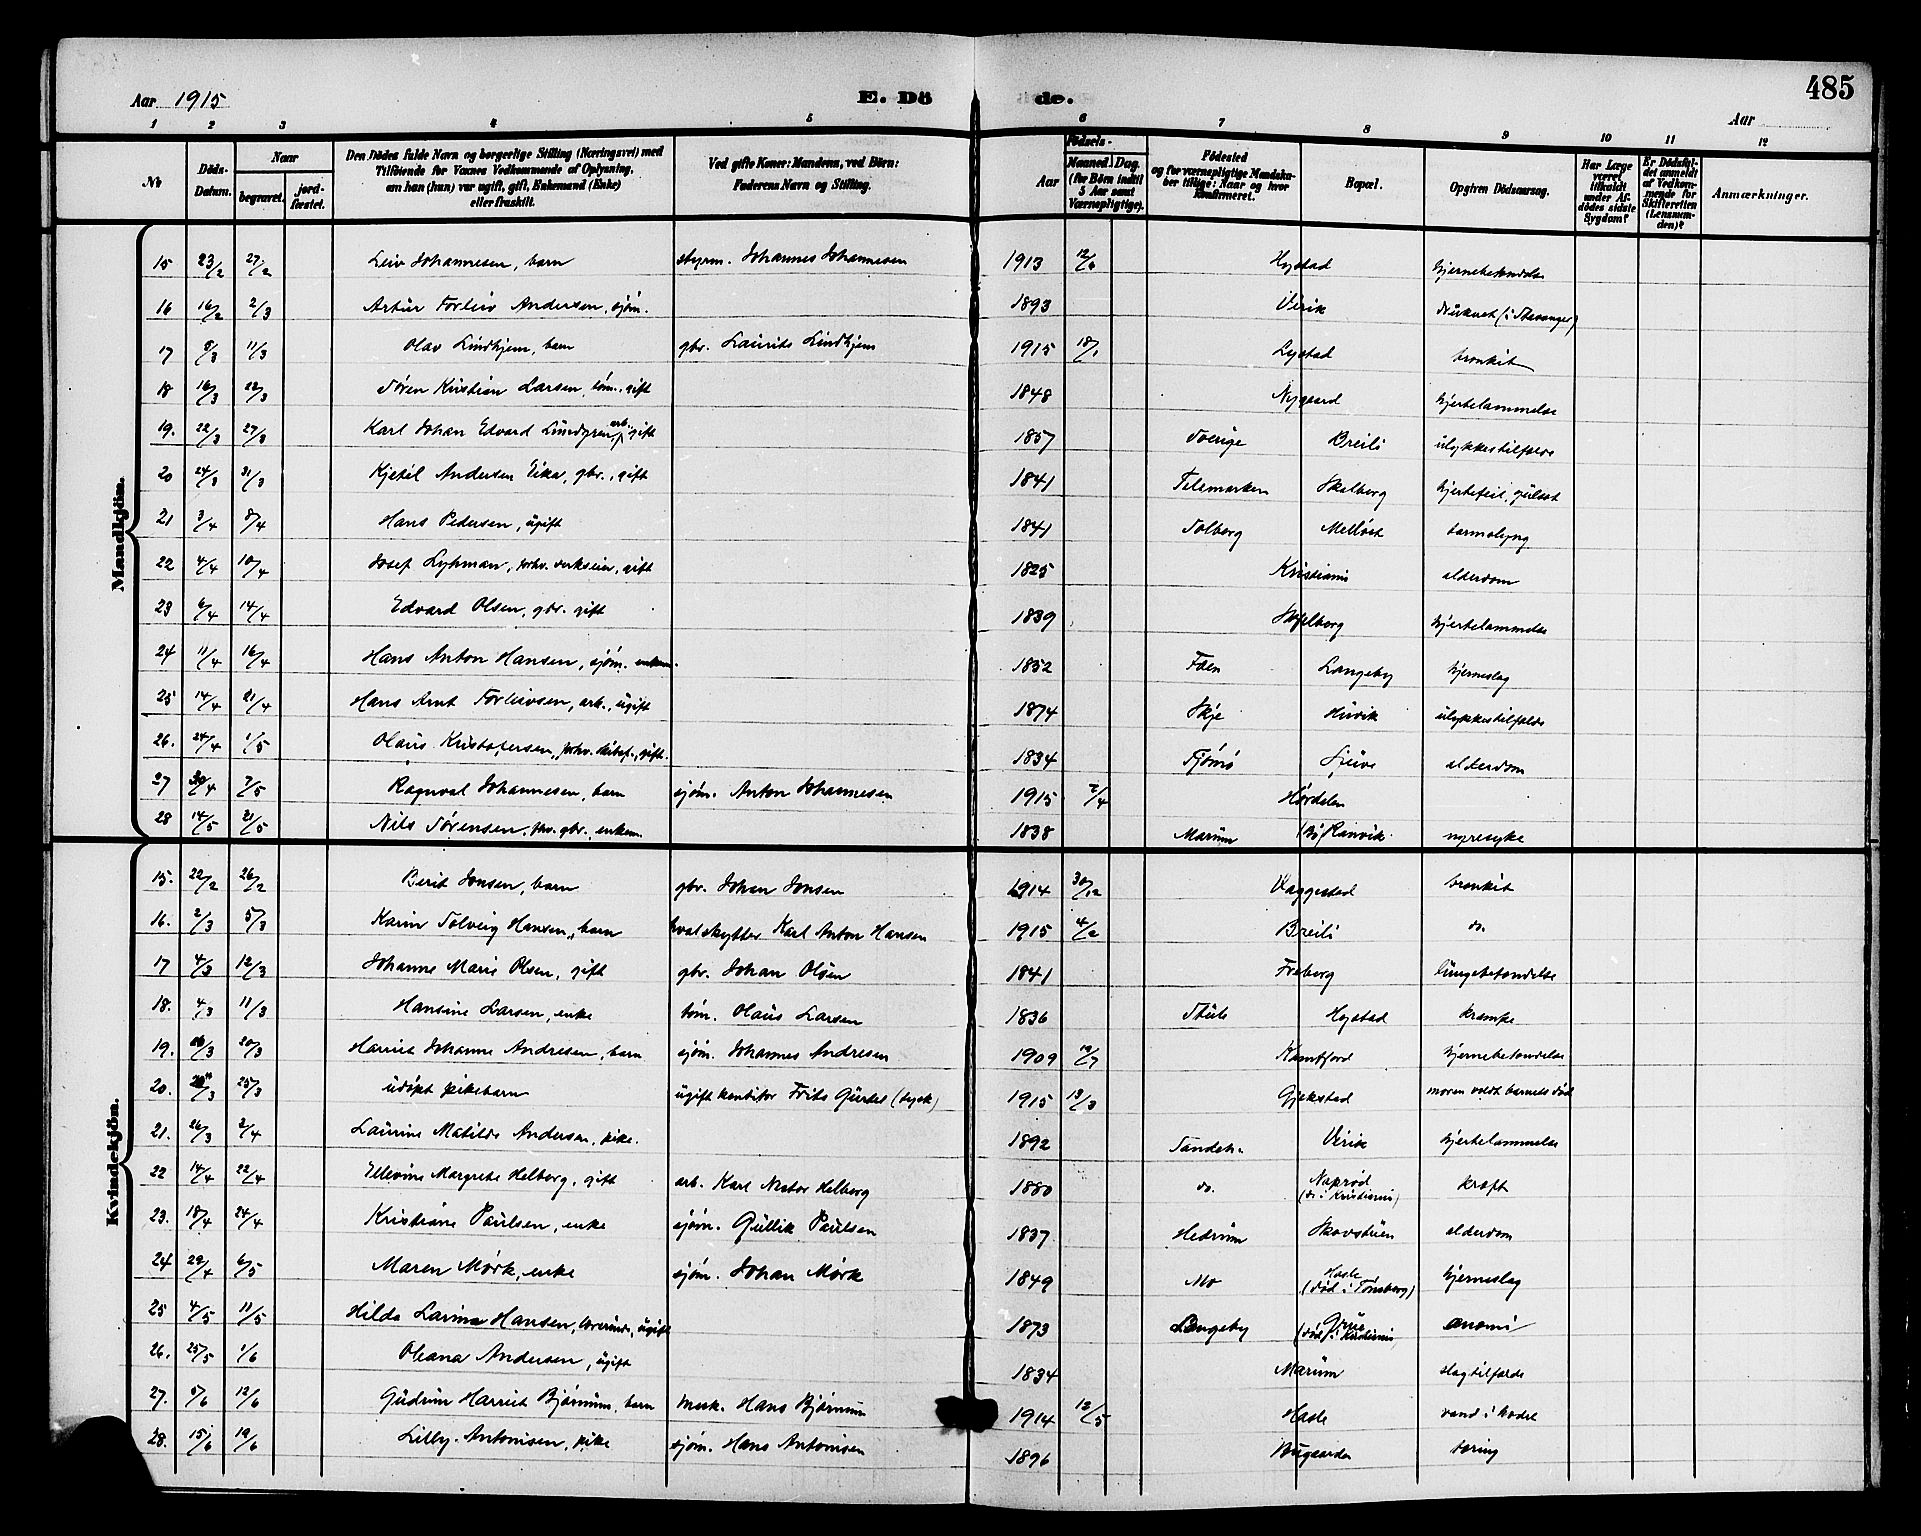 485
Aar 1915 E. Dö de. Aar
1 2 3 4 5 6 7 8 9 10 11 12
No
Döds-Datum.
Naar begravet. jord-fæstet.
Den Dödes fulde Navn og borgerlige Stilling (Næringsvei) med Tilföiende for Voxnes Vedkommende af Oplysning, om han (hun) var ugift, gift, Enkemand (Enke) eller fraskilt.
Ved gifte Koner: Mandens, ved Börn: Faderens Navn og Stilling.
Födsels- Aar Maaned. Dag. (for Börn indtil 5 Aar samt Værnepligtige).
Födested og for værnepligtige Mandskaber tillige: Naar og hvor konfirmeret.
Bopæl.
Opgiven Dödsaarsag.
Har Læge været tilkaldt under Afdödes sidste Sygdom?
Er Dödsfaldet anmeldt af Vedkommende for Skifteretten (Lensmanden)?
Anmærkninger.
Mandkjön.
15 23/2 27/2 Leiv Johannesen, barn styrm. Johannes Johannesen 1913 Hystad hjernebetændelse
16 16/2 2/3 Artur Torleiv Andersen, sjøm. 1893 Virik druknet (i Stavanger)
17 11/3 Olav Lindhjem, barn gbr. Laurits Lindhjem 1915 18/1 Lystad bronkit
18 16/3 22/3 Søren Kristian Larsen, tøm., gift 1848 Nygaard hjertelammelse
19. 22/3 27/3 Karl Johan Edvard Lundgren, arb. gift 1857 Sverige Breili ulykkestilfælde
20 24/3 31/3 Kjetil Andersen Eika, gbr., gift 1841 Telemarken Skalberg hjertefeil, gulsot
21 3/4 8/4 Hans Pedersen, ugift 1841 Solberg Melløst tarmslyng
22 4/4 10/4 Josef Lyhman, forhv. verkseier, gift 1825 Kristiania alderdom
23 6/4 14/4 Edvard Olsen, gbr. gift 1839 Skjelberg hjertelammelse
24 11/4 16/4 Hans Anton Hansen, sjøm. enkem. 1852 Fæn Langeby hjerneslag
25 14/4 21/4 Hans Arnt Torleivsen, arb., ugift 1874 Skje Huvik ulykkestilfælde
26. 24/4 1/5 Olaus Kristofersen, forhv. skibsf., gift. 1834 Tjømø alderdom
27 30/4 7/5 Ragnval Johannesen, barn sjøm. Anton Johannesen 1915 2/4 Hørdalen
28 14/5 21/5 Nils Sørensen, fhv. gbr., enkem. 1838 Marum Ranvik. nyresyke
Kvindekjön.
15. 22/2 26/2 Berit Jonsen, barn gbr. Johan Jonsen 1914 30/12 Vaggestad bronkit
16. 2/3 5/3 Karin Solveig Hansen, barn hvalskytter Karl Anton Hansen 1915 4/2 Breili do.
17 4/3 12/3 Johanne Marie Olsen, gift gbr. Johan Olsen 1841 Freberg lungebetændelse
18. 4/3 11/3 Hansine Larsen, enke tøm. Olaus Larsen 1836 Stub Hystad krampe
19. 16/3 20/3 Harriet Johanne Andresen, barn sjøm. Johannes Andresen 1909 19/7 Kamfjord hjernebetændelse
20. 25/3 udøpt pikebarn ugift konditor Frits Gürtel (tysk) 1915 13/3 Gjekstad moren voldt barnets død
21. 26/3 2/4 Laurine Matilde Andersen, pike. 1892 Sandeh. Virik hjertelammelse
22 14/4 22/4 Ellevine Margrete Helberg, gift arb. Karl Nestor Helberg 1880 do. Naprød (d. i Kristiania) kræft
23. 18/4 24/4 Kristiane Paulsen, enke sjøm. Gullik Paulsen 1837 Hedrum Skovstuen alderdom
24 29/4 6/5 Maren Mørk, enke sjøm. Johan Mørk 1849 Mo Hasle (død i Tønsberg) hjerneslag
25 4/5 11/5 Hilda Larina Hansen, lærerind., ugift 1873 Langeby (død i Kristiania) anæmi
26. 25/5 1/6 Oleana Andersen, ugift 1834 Marum slagtilfælde
27. 5/6 12/6 Gudrun Harriet Bjørnum, barn mask. Hans Bjørnum 1914 12/5 Hasle vand i hodet
28. 15/6 19/6 Lilly Antonisen, pike sjøm. Hans Antonisen 1896 Bugaarden tæring